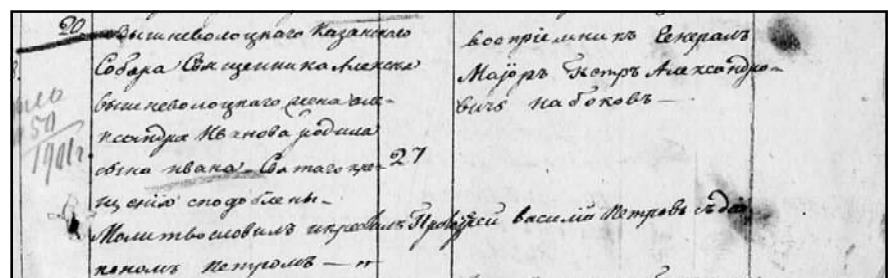 20 Вышневолоцкаго Казанскаго
Собора Священника Алексея
Вышневолоцкаго жена Але-
ксандра Иванова родила
сына Ивана. Святаго кре- 27
щения сподоблены.
Молитвословилъ и крестилъ Протоиерей Василий Петровъ съ дья
кономъ Петромъ —
восприемникъ Генералъ
Маиоръ Петръ Александро-
вичь Набоковъ —
50
1901 г.